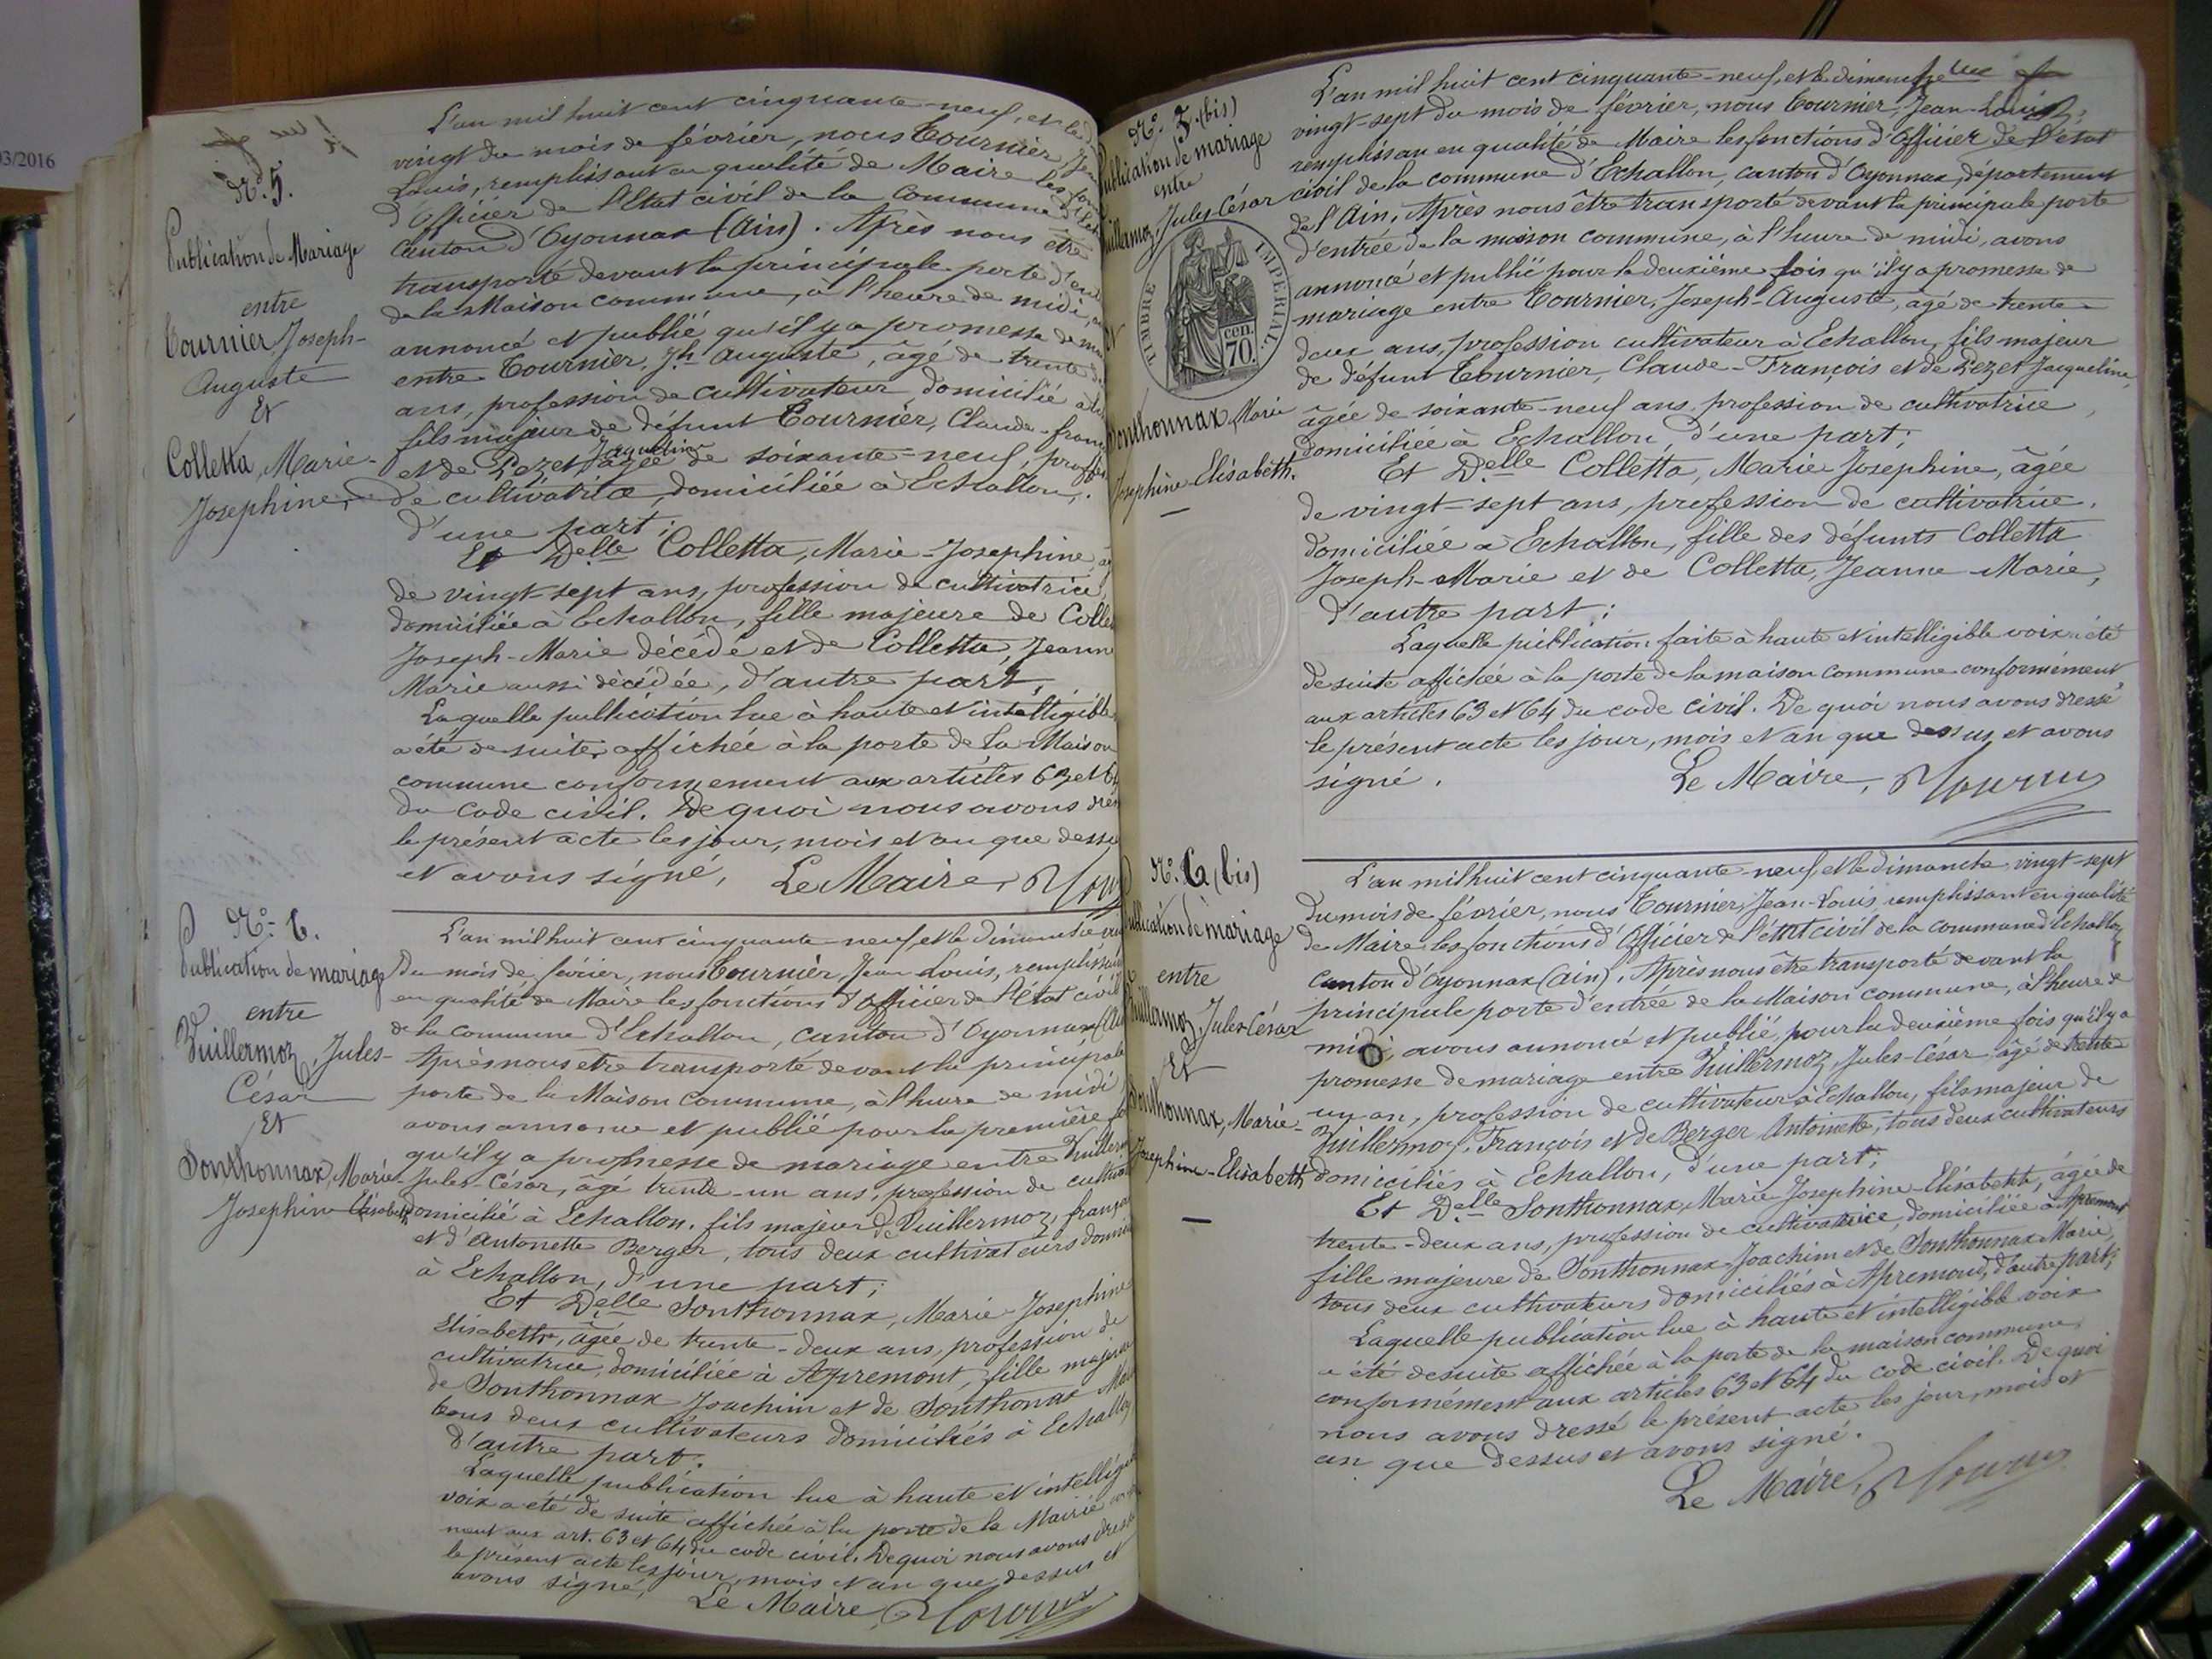 03/2016
N.° 5.
Publication de Mariage
entre
Tournier, Joseph-
Auguste
Et
Colletta, Marie-
Josephine,
L'an mil huit cent cinquante-neuf, et le
vingt du mois de février, nous Tournier,
Louis, remplissant en qualité de Maire les
d'Officier de l'Etat civil de la Commune
Canton d'Oyonnax (Ain). Après nous être
transporté devant la principale porte
de la Maison commune, à l'heure de midi,
annoncé et publié qu'il y a promesse de
entre Tournier, J.h Auguste, âgé de trente
ans, profession de cultivateur, domicilié à
fils majeur de défunt Tournier, Claude
et de Pezet Jaqueline âgée de soixante-neuf,
de cultivatrice, domiciliée à Echallon,
d'une part;
Et D.elle Colletta, Marie-Josephine,
de vingt-sept ans, profession de cultivatrice,
domiciliée à Echallon, fille majeure de
Joseph-Marie décédé et de Colletta,
Marie aussi décédée, d'autre part,
Laquelle publication lue à haute et intelligible
a été de suite affichée à la porte de la Maison
commune conformement aux articles 63 et
du code civil. De quoi nous avons
le présent acte les jour, mois et an que
et avons signé, Le Maire,
N.° 6.
Publication de mariage
entre
Vuillermoz, Jules-
César
Et
Sonthonnax, Marie-
Josephine Elisabeth
L'an mil huit cent cinquante-neuf, et le dimanche
du mois de février, nous Tournier, Jean Louis,
en qualité de Maire les fonctions d'Officier de l'Etat civil
de la commune d'Echallon, canton d'Oyonnax
Après nous être transporté devant la principale
porte de la Maison commune, à l'heure de midi
avons annoncé et publié pour la première
qu'il y a promesse de mariage entre
Jules-César, âgé trente-un ans, profession de
domicilié à Echallon, fils majeur de Vuillermoz,
et d'Antonette Berger, tous deux cultivateurs
à Echallon, d'une part;
Et D.elle Sonthonnax, Marie Josephine
Elisabeth, âgée de trente-deux ans, profession de
cultivatrice, domiciliée à Apremont, fille
de Sonthonnax Joachim et de Sonthonax
tous deux cultivateurs domiciliés à
d'autre part.
Laquelle publication lue à haute et
voix a été de suite affichée à la porte de la Mairie
aux art. 63 et 64 du code civil. De quoi nous avons
le présent acte les jour, mois et an que dessus et
avons signé, Le Maire,
N.° 5 (bis)
Publication de mariage
entre
Jules César
TIMBRE IMPERIAL.
70. cen.
Sonthonnax, Marie
Josephine-Elisabeth.
L'an mil huit cent cinquante-neuf, et le dimanche
vingt-sept du mois de février, nous Tournier, Jean-Louis,
remplissan en qualité de Maire les fonctions d'Officier de l'etat
civil de la commune d'Echallon, canton d'Oyonnax, département
de l'Ain. Après nous être transporté devant la principale porte
d'entrée de la maison commune, à l'heure de midi, avons
annoncé et publié pour la deuxième fois qu'il y a promesse de
mariage entre Tournier, Joseph-Auguste, agé de trente-
deux ans, profession cultivateur à Echallon, fils majeur
de défunt Tournier, Claude-François et de Pezet Jacqueline,
âgée de soixante-neuf ans profession de cultivatrice,
domiciliée à Echallon, d'une part;
Et D.elle Colletta, Marie Josephine, âgée
de vingt-sept ans, profession de cultivatrice,
domiciliée à Echallon, fille des défunts Colletta
Joseph-Marie et de Colletta, Jeanne-Marie,
d'autre part;
Laquelle publication faite à haute et intelligible voix a été
de suite affichée à la porte de la maison commune conformément
aux articles 63 et 64 du code civil. De quoi nous avons dressé
le présent acte les jour, mois et an que dessus, et avons
signé. Le Maire,
N.° 6 (bis)
Publication de mariage
entre
Jules César
Et
Sonthonnax, Marie-
Josephine-Elisabeth
L'an mil huit cent cinquante-neuf, et le dimanche vingt-sept
du mois de février, nous Tournier, Jean-Louis remplissant en qualité
de Maire les fonctions d'Officier de l'état civil de la commune d'Echallon
canton d'Oyonnax (Ain). Après nous être transporté devant la
principale porte d'entrée de la Maison commune, à l'heure de
midi, avons annoncé et publié, pour la deuxième fois qu'il y a
promesse de mariage entre Vuillermoz, Jules-César, âgé de trente
un an, profession de cultivateur à Echallon, fils majeur de
Vuillermoz, François et de Berger Antoinette, tous deux cultivateurs
domiciliés à Echallon, d'une part;
Et D.elle Sonthonnax, Marie-Josephine-Elisabeth, âgée de
trente-deux ans, profession de cultivatrice, domiciliée à Apremont
fille majeure de Sonthonnax Joachim et de Sonthonnax Marie,
tous deux cultivateurs domiciliés à Apremont, d'autre part;
Laquelle publication lue à haute et intelligible voix
a été de suite affichée à la porte de la maison commune,
conformément aux articles 63 et 64 du code civil. De quoi
nous avons dressé le présent acte les jour, mois et
an que dessus et avons signé.
Le Maire,